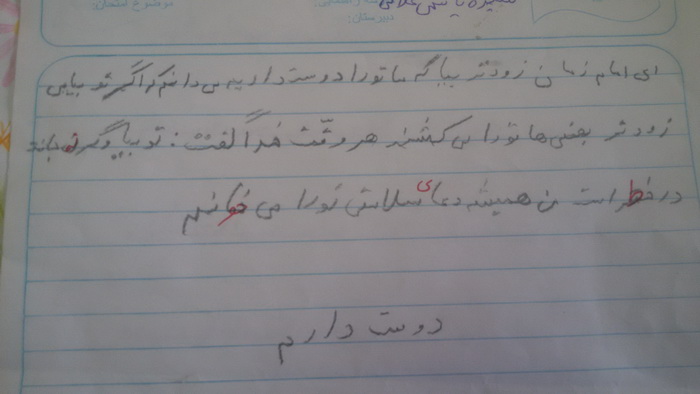 دبیرستان:
ای امام زمان زودتر بیا که ما تو را دوست داریم می دانم که اگر تو بیایی
زودتر بعضی ها تو را می کشند هر وقت خدا گفت: تو بیا وگرنه
در خطر است من همیشه دعای سلامتی تو را می خوانم
دوست دارم